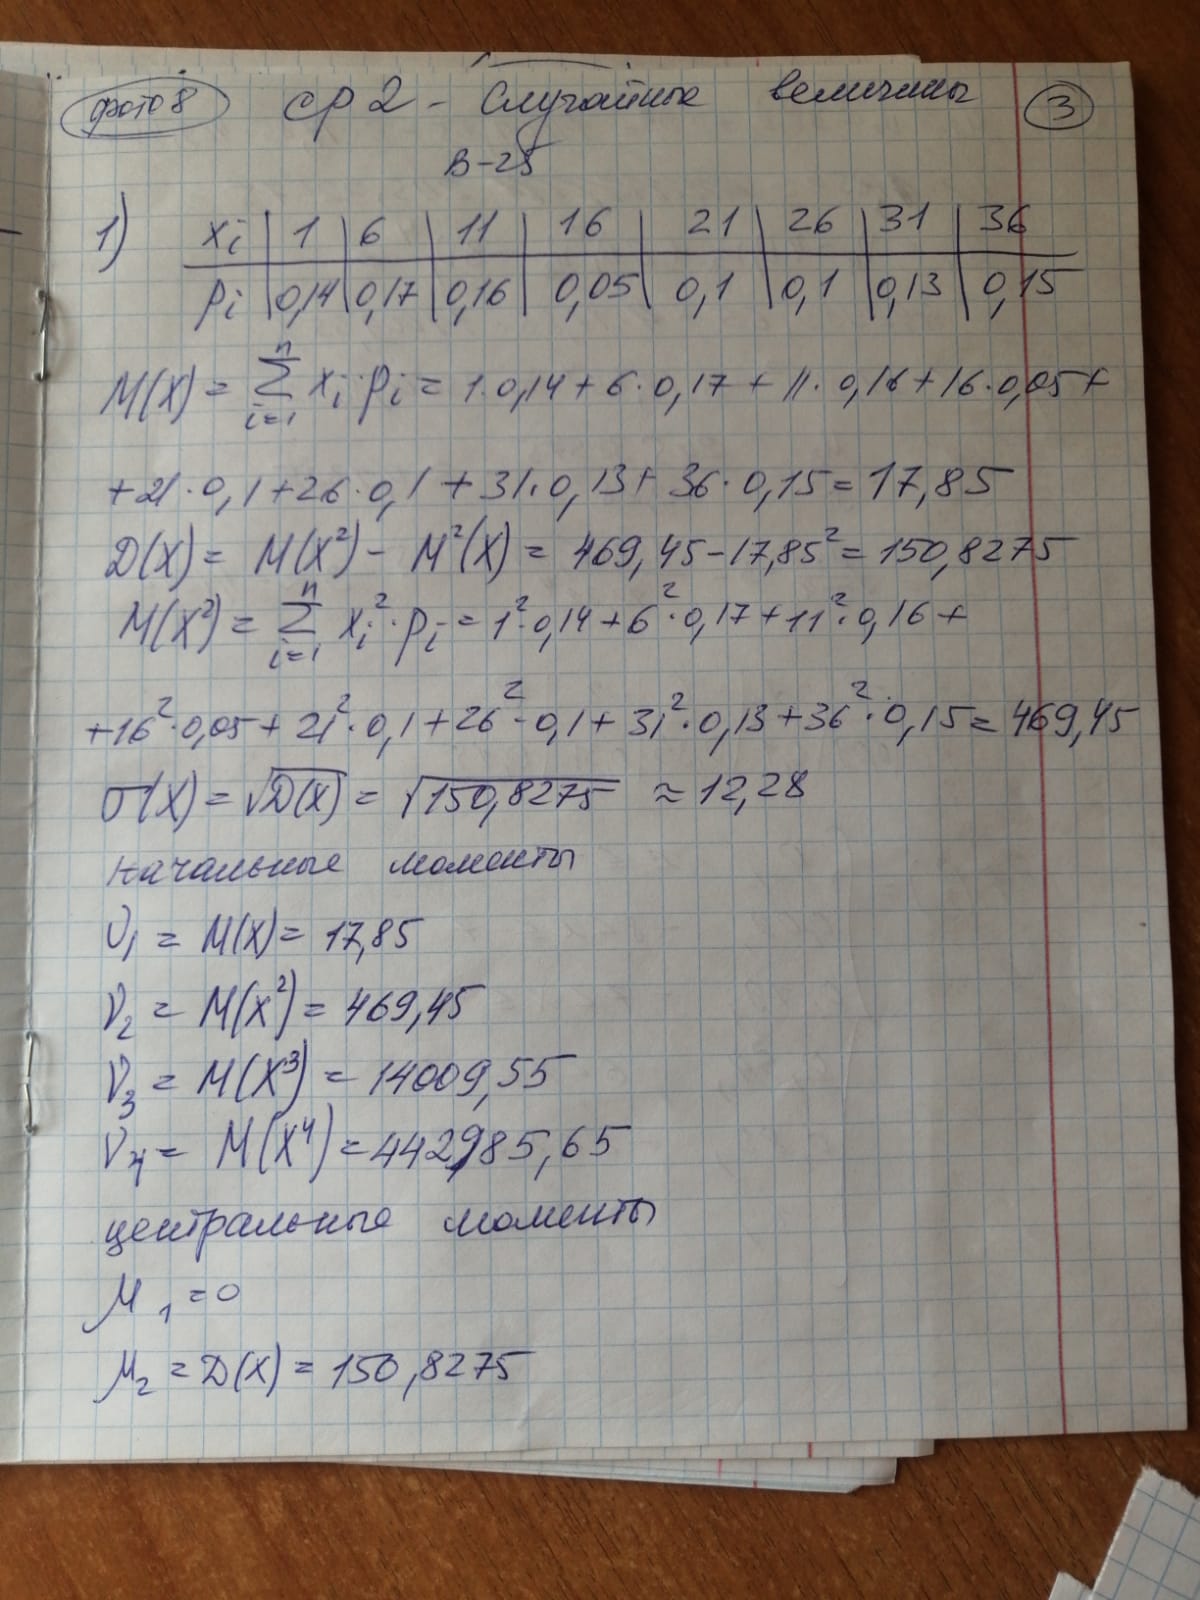 фото 8 ср 2 - Случайные величины 3
В-25
1) xi | 1 | 6 | 11 | 16 | 21 | 26 | 31 | 36
pi | 0,14 | 0,17 | 0,16 | 0,05 | 0,1 | 0,1 | 0,13 | 0,15
M(X) = ∑ⁿᵢ₌₁ xi · pi = 1·0,14 + 6·0,17 + 11·0,16 + 16·0,05 +
+ 21·0,1 + 26·0,1 + 31·0,13 + 36·0,15 = 17,85
D(X) = M(X²) - M²(X) = 469,45 - 17,85² = 150,8275
M(X²) = ∑ⁿᵢ₌₁ xi² · pi = 1²·0,14 + 6²·0,17 + 11²·0,16 +
+ 16²·0,05 + 21²·0,1 + 26²·0,1 + 31²·0,13 + 36²·0,15 = 469,45
σ(X) = √D(X) = √150,8275 ≈ 12,28
начальные моменты
ν₁ = M(X) = 17,85
ν₂ = M(X²) = 469,45
ν₃ = M(X³) = 14009,55
ν₄ = M(X⁴) = 442985,65
центральные моменты
μ₁ = 0
μ₂ = D(X) = 150,8275